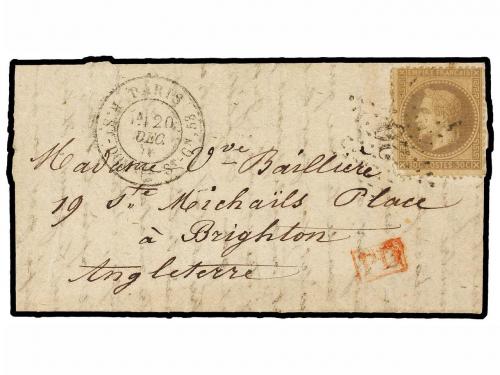 PARIS
20
DEC.
EMPIRE FRANÇAIS
POSTES 30 C
Madame Vve Baillière
19 Ste Michaïls Place
à Brighton
Angleterre
PD